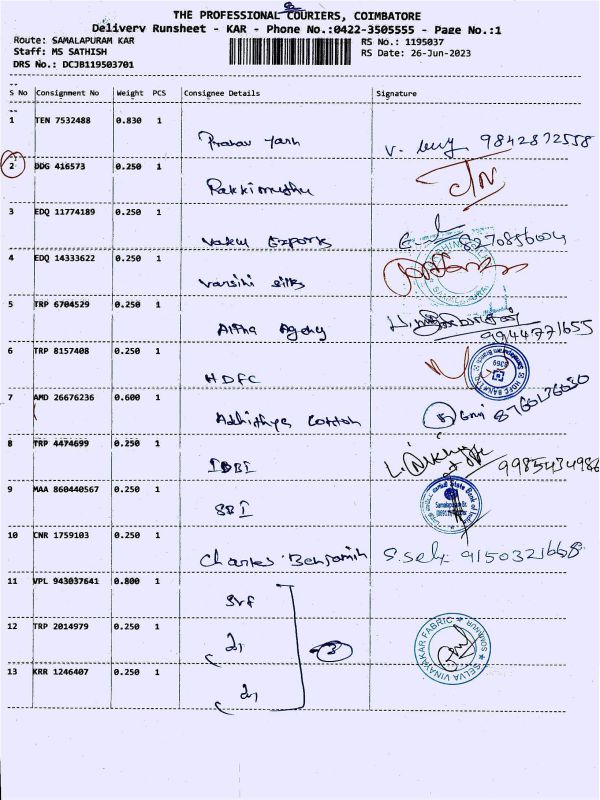 THE PROFESSIONAL COURIERS, COIMBATORE
Delivery Runsheet - KAR - Phone No.:0422-3505555 - Page No.:1
Route: SAMALAPURAM KAR RS No.: 1195037
Staff: MS SATHISH RS Date: 26-Jun-2023
DRS No.: DCJB119503701
S No Consignment No Weight PCS Consignee Details Signature
1 TEN 7532488 0.830 1
V. 9842872558
2 DDG 416573 0.250 1
3 EDQ 11774189 0.250 1
Exports 8270856004
4 EDQ 14333622 0.250 1
Varsini silks
5 TRP 6704529 0.250 1
Alpha Agency 9944771655
6 TRP 8157408 0.250 1
HDFC
HDFC BANK
7 AMD 26676236 0.600 1
Adhithya Cotton
8 TRP 4474699 0.250 1
IDBI 9985434986
9 MAA 860440567 0.250 1
SBI State Bank of India
10 CNR 1759103 0.250 1
Charles Benjamin S. Selv 9150321668
11 VPL 943037641 0.800 1
SVF
12 TRP 2014979 0.250 1
3
SELVA VINAYAKAR FABRIC
13 KRR 1246407 0.250 1